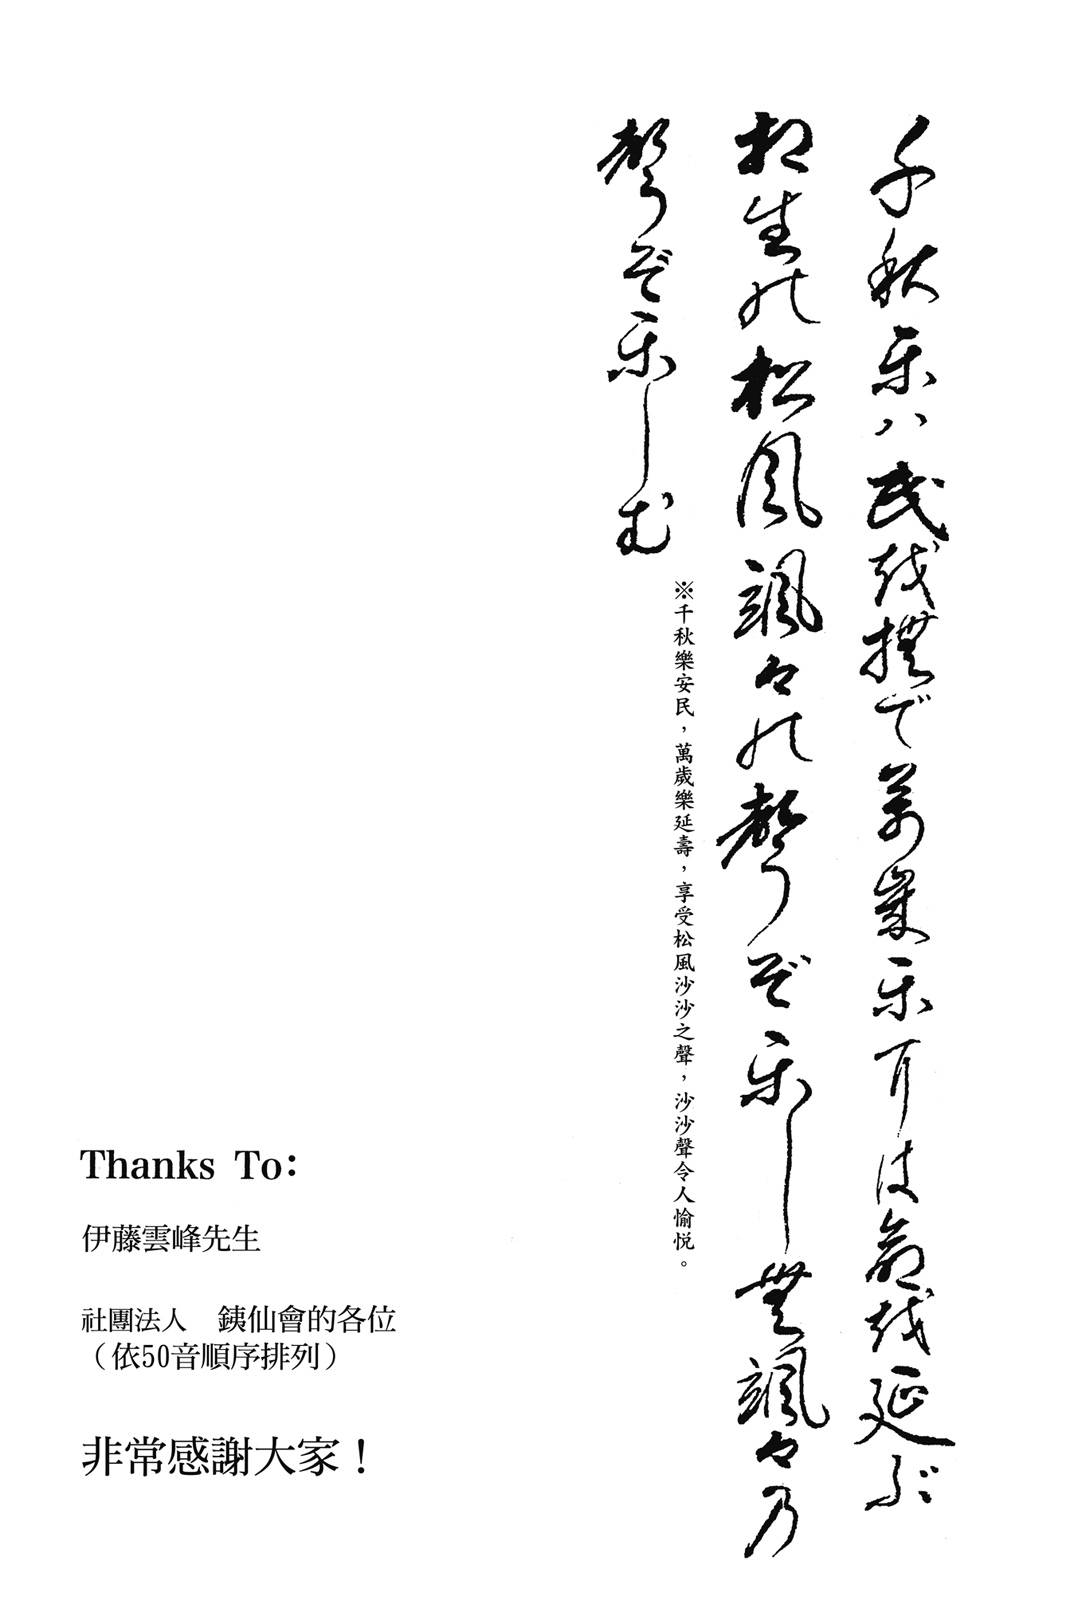 千秋楽ハ民越撫で萬歳楽耳は命越延ぶ
相生の松風颯々の聲ぞ楽し無颯々乃
聲ぞ楽しむ
※千秋樂安民，萬歲樂延壽，享受松風沙沙之聲，沙沙聲令人愉悅。
Thanks To：
伊藤雲峰先生
社團法人　銕仙會的各位
（依50音順序排列）
非常感謝大家！